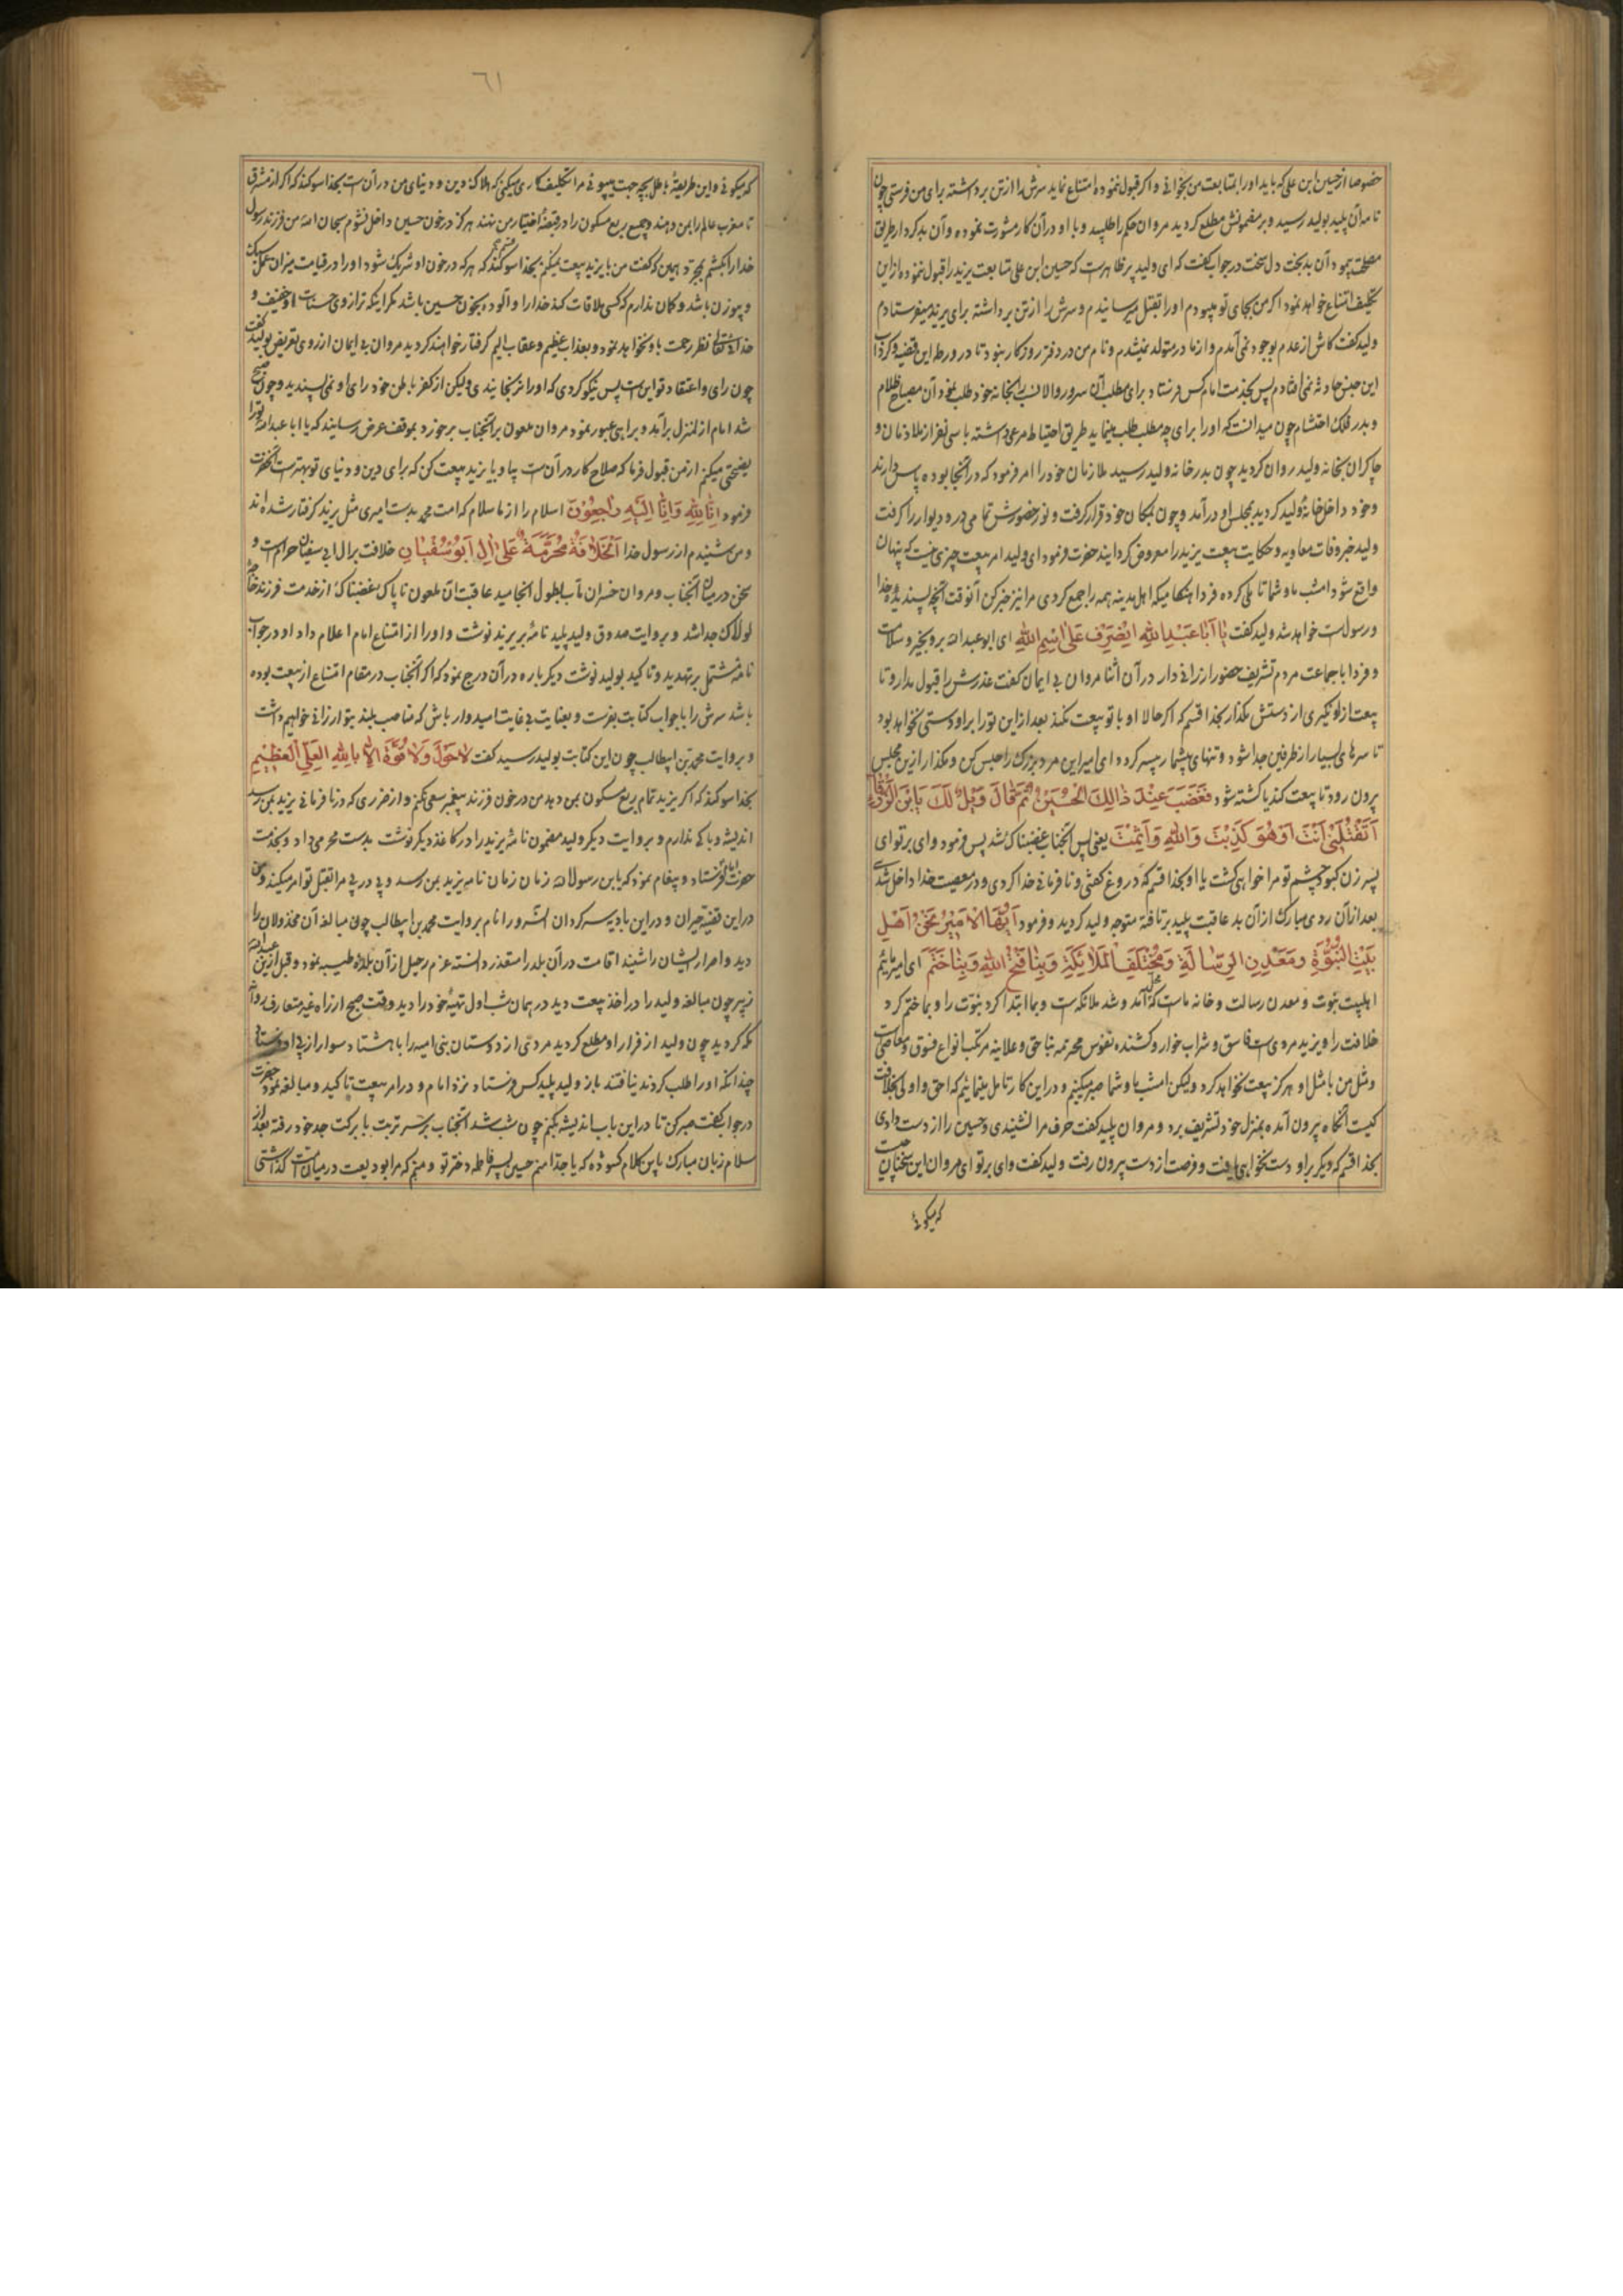 خصوصا از حسین ابن علی که باید او را بمتابعت من بخوانی و اگر قبول ننموده امتناع نماید سرش را از تن برداشته برای من فرستی چون
نامه آن پلید بولید رسید و بر مضمونش مطلع گردید مروان حکم را طلبید و با او در آن کار مشورت نموده و آن بدکردار طریق
مصلحت پیمود آن بدبخت دل سخت در جواب گفت که ای ولید پر ظاهرست که حسین ابن علی متابعت یزید را قبول ننموده از این
تکلیف امتناع خواهد نمود اگر من بجای تو میبودم او را بقتل میرسانیدم و سرش را از تن برداشته برای یزید میفرستادم
ولید گفت کاش از عدم بوجود نمی آمدم و از مادر متولد نمیشدم و نام من در دفتر روزگار نبود تا در ورطه این قضیه و گرداب
این چنین حادثه نمی افتادم پس بخدمت امام کس فرستاد برای مطلب آن سرور والا نسب را بخانه خود طلب نمود آن مصباح ظلام
و بدر فلک احتشام چون میدانست که او را برای چه مطلب طلب مینماید طریق احتیاط مرعی داشته با سی نفر از ملازمان و
چاکران بخانه ولید روان گردید چون بدر خانه ولید رسید ملازمان خود را امر فرمود که در آنجا بوده پاس دارند
و خود داخل خانه ولید گردید بمجلس او درآمد و چون بمکان خود قرار گرفت و نور حضورش تمامی در و دیوار را گرفت
ولید خبر وفات معاویه و حکایت بیعت یزید را معروض گردانید حضرت فرمود ای ولید امر بیعت چیزی نیست که پنهان
واقع شود امشب ما و شما تاملی کرده فردا هنگامیکه اهل مدینه همه را جمع کردی مرا نیز خبر کن آنوقت آنچه پسندیده خدا
و رسول است خواهد شد ولید گفت یا اَبا عَبْدِ اللهِ اِنْصَرِفْ عَلیٰ اسْمِ اللهِ ای ابو عبد الله برو بخیر و سلامت
و فردا با جماعت مردم تشریف حضور ارزانی دار در آن اثنا مروان بی ایمان گفت عذرش را قبول مدار و تا
بیعت از او نگیری از دستش مگذار بخدا قسم که اگر حالا او با تو بیعت نکند بعد از این تو را بر او دستی نخواهد بود
تا سرهای بسیار از طرفین جدا شود و تنهای بیشمار بیسر گردد ای امیر این مرد بزرگ را حبس کن و مگذار از این مجلس
بیرون رود تا بیعت کند یا کشته شود فَغَضَبَ عِنْدَ ذٰالِکَ الْحُسَیْنُ ثُمَّ قٰالَ وَیْلٌ لَکَ یَابْنَ الزَّرْقٰاءِ
اَتَقْتُلُنِیْ اَنْتَ اَوْ هُوَ کَذِبْتَ وَاللهِ وَاَثِمْتَ یعنی پس آنجناب غضبناک شد پس فرمود وای بر تو ای
پسر زن کبود چشم تو مرا خواهی کشت یا او بخدا قسم که دروغ گفتی و نافرمانی خدا کردی و در معصیت خدا داخل شدی
بعد از آن روی مبارک از آن بد عاقبت پلید برتافته متوجه ولید گردید و فرمود اَیُّهَا الاَمِیْرُ نَحْنُ اَهْلِ
بَیْتِ النُّبُوَّةِ وَ مَعْدِنِ الرِّسٰالَةِ وَ مُخْتَلَفِ الْمَلٰائِکَةِ وَ بِنٰا فَتَحَ اللهُ وَ بِنٰا خَتَمَ ای امیر مائیم
اهلبیت نبوت و معدن رسالت و خانه ماست محل آمد و شد ملائکه است و بما ابتدا کرد نبوت را و بما ختم کرد
خلافت را و یزید مردی است فاسق و شراب خوار و کشنده نفوس محرمه بناحق و علانیه مرتکب انواع فسوق و معاصی است
و مثل من با مثل او هرگز بیعت نخواهد کرد ولیکن امشب ما و شما صبر میکنیم و در این کار تامل مینمائیم که احق و اولی بخلافت
کیست آنگاه بیرون آمده بمنزل خود تشریف برد و مروان پلید گفت حرف مرا نشنیدی و حسین را از دست دادی
بخدا قسم که دیگر بر او دست نخواهی یافت و فرصت از دست بیرون رفت ولید گفت وای بر تو ای مروان این سخنان چیست
که میگوئی
٦١
که میگوئی و این طریقه باطل بچه جهت میپوئی مرا تکلیف کاری میکنی که هلاک دین و دنیای من در آن است بخدا سوگند که اگر از مشرق
تا مغرب عالم را بمن دهند و جمیع ربع مسکون را در قبضه اختیار من نهند هرگز در خون حسین داخل نشوم سبحان الله من فرزند رسول
خدا را بکشم بمجرد همین که گفت من با یزید بیعت نمیکنم بخدا سوگند که هر که در خون او شریک شود او را در قیامت میزان عمل سبک
و بیوزن باشد و گمان ندارم که کسی ملاقات کند خدا را و آلوده بخون حسین باشد مگر اینکه ترازوی حسنات او خفیف و
خدا یتعالی نظر رحمت باو نخواهد نمود و بعذاب عظیم و عقاب الیم گرفتار خواهند گردید مروان بی ایمان از روی تعریض بولید گفت
چون رای و اعتقاد تو این است پس نیکو کردی که او را نرنجانیدی ولیکن از کفر باطن خود رای او نمی پسندید و چون صبح
شد امام از منزل برآمد و براهی عبور نمود مروان ملعون بر آنجناب برخورد بموقف عرض رسانید که یا ابا عبد الله تو را
نصیحتی میکنم از من قبول فرما که صلاح کار در آن است بیا و با یزید بیعت کن که برای دین و دنیای تو بهتر است آنحضرت
فرمود اِنّٰا لِلّٰهِ وَ اِنّٰا اِلَیْهِ رٰاجِعُوْنَ اسلام را از ما سلام که امت محمد بدست امیری مثل یزید گرفتار شده اند
و من شنیدم از رسول خدا اَلْخِلٰافَةُ مُحَرَّمَةٌ عَلیٰ اٰلِ اَبُوْسُفْیٰانِ خلافت بر آل ابی سفیان حرام است و
سخن در میان آنجناب و مروان خسران مآب بطول انجامید عاقبت آن ملعون ناپاک غضبناک از خدمت فرزند
لولاک جدا شد و بروایت صدوق ولید پلید نامه بر یزید نوشت و او را از امتناع امام اعلام داد او در جواب
نامه مشتمل بر تهدید و تاکید بولید نوشت دیگر باره در آن درج نمود که اگر آنجناب در مقام امتناع از بیعت بوده
باشد سرش را با جواب کتابت بفرست و بعنایت بی غایت امیدوار باش که مناصب بلند بتو ارزانی خواهیم داشت
و بروایت محمد بن ابیطالب چون این کتابت بولید رسید گفت لا حَوْلَ وَ لا قُوَّةَ اِلّا بِاللهِ الْعَلِیِّ الْعَظِیْمِ
بخدا سوگند که اگر یزید تمام ربع مسکون بمن دهد من در خون فرزند پیغمبر سعی نکنم و از ضرری که در نافرمانی یزید بمن رسد
اندیشه و باکی ندارم و بروایت دیگر ولید مضمون نامه یزید را در کاغذ دیگر نوشت بدست محرمی داد و بخدمت
حضرت امام فرستاد و پیغام نمود که یابن رسول الله زمان زمان نامه یزید بمن رسد و پی در پی مرا بقتل تو امر میکند و من
در این قضیه حیران و در این بادیه سرگردان آن سرور انام بروایت محمد بن ابیطالب چون مبالغه آن مخذولان را
دید و اصرار ایشان را شنید اقامت در آن بلد را متعذر دانسته عزم رحیل از آن بلده طیبه نمود و قبل از این عبدالله
زبیر چون مبالغه ولید را در اخذ بیعت دید در همان شب اول تهیه خود را دید وقت صبح از راه غیر متعارف روانه
مکه گردید چون ولید از فرار او مطلع گردید مردی از دوستان بنی امیه را با هشتاد سوار از پی او فرستاد
چندانکه او را طلب کردند نیافتند باز ولید پلید کس فرستاد نزد امام و در امر بیعت تاکید و مبالغه نمود حضرت
در جواب گفت صبر کن تا در این باب اندیشه بکنم چون شب شد آنجناب بر سر تربت با برکت جد خود رفته بعد از
سلام زبان مبارک باین کلام گشوده که یا جدا منم حسین پسر فاطمه دختر تو و منم که مرا بودیعت در میان امت گذاشتی